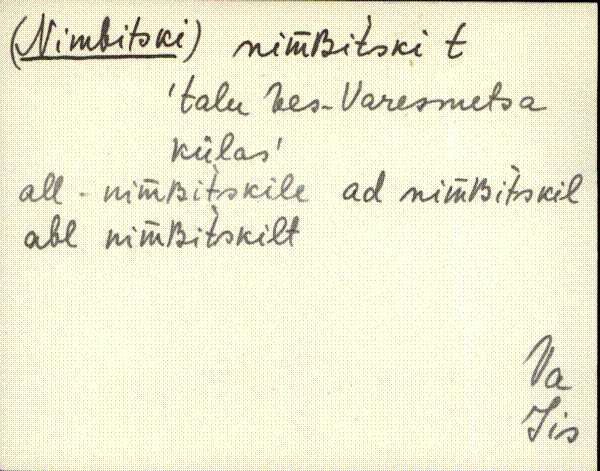 (Nimbitski) nim̄Bìtski t
'talu Kes-Varesmetsa
külas'
all - nim̄Bìtskile ad nim̄Bìtskil
abl nim̄Bìtskilt
Va
Iis